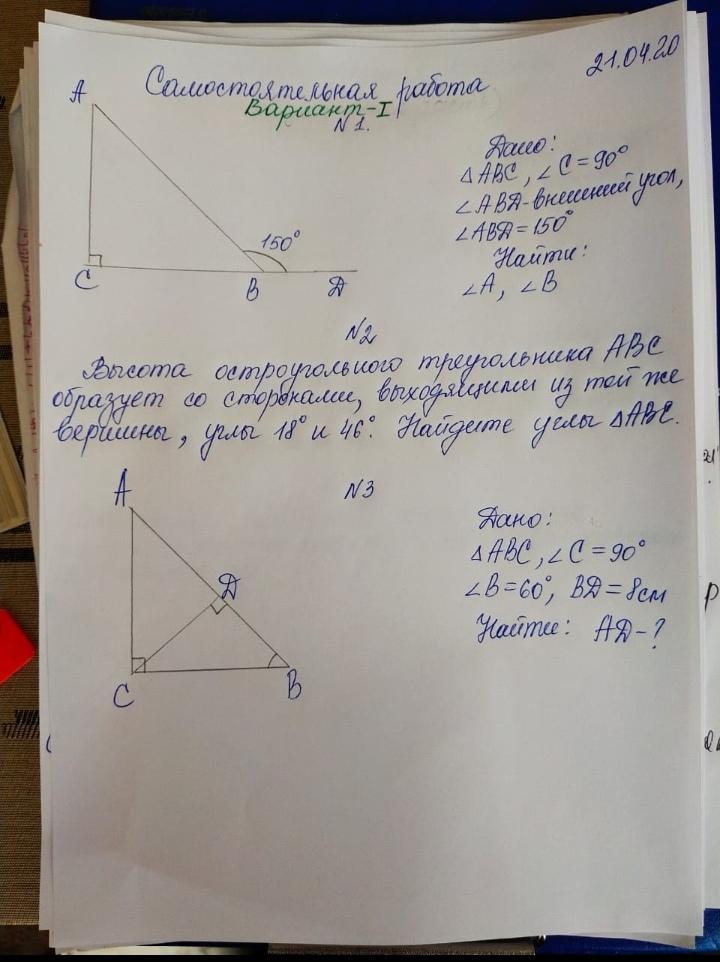 21.04.20
Самостоятельная работа
Вариант-I
N1.
A
150°
C
B
D
Дано:
△ABC, ∠C=90°
∠ABD-внешний угол,
∠ABD=150°
Найти:
∠A, ∠B
N2
Высота остроугольного треугольника ABC
образует со сторонами, выходящими из той же
вершины, углы 18° и 46°. Найдите углы △ABC.
N3
A
D
C
B
Дано:
△ABC, ∠C=90°
∠B=60°, BD=8см
Найти: AD-?